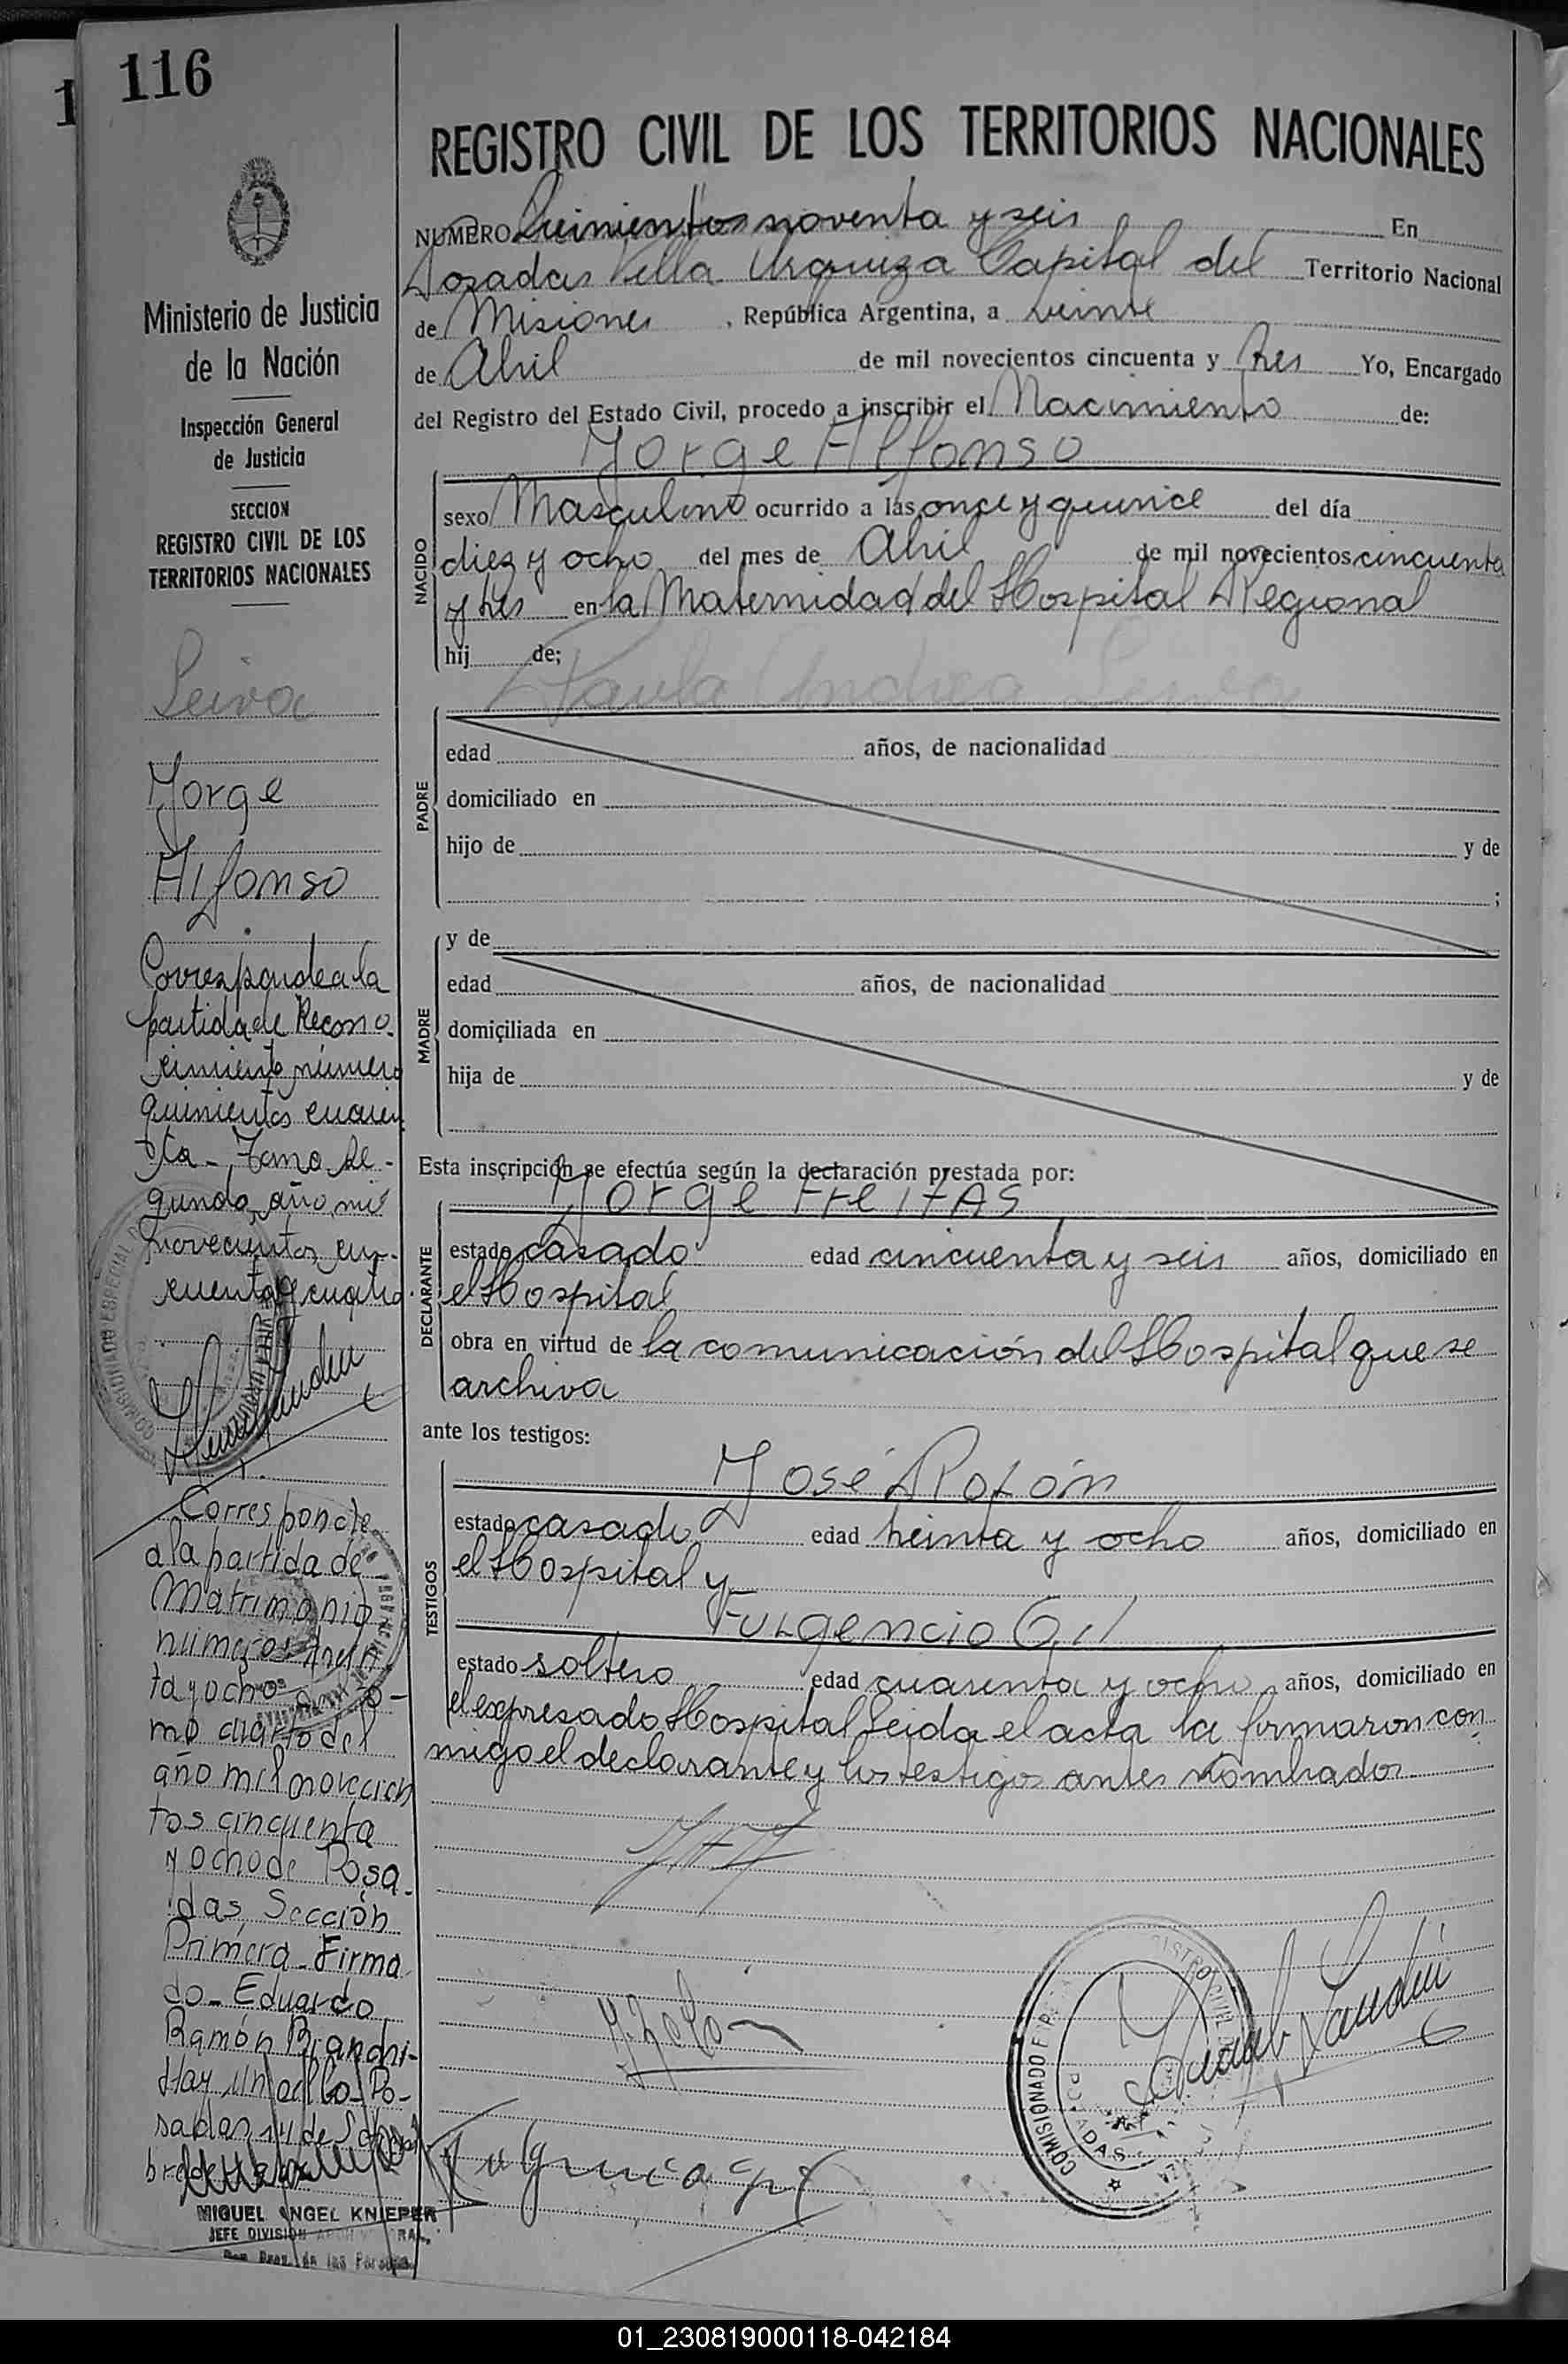 116
REGISTRO CIVIL DE LOS TERRITORIOS NACIONALES
NUMERO Quinientos noventa y seis En
Posadas Villa Urquiza Capital del Territorio Nacional
de Misiones, República Argentina, a veinte
de Abril de mil novecientos cincuenta y tres Yo, Encargado
del Registro del Estado Civil, procedo a inscribir el Nacimiento de:
Jorge Alfonso
NACIDO
sexo Masculino ocurrido a las once y quince del día
diez y ocho del mes de Abril de mil novecientos cincuenta
y tres en la Maternidad del Hospital Regional
hij de;
Paula Andrea Leiva
PADRE
edad años, de nacionalidad
domiciliado en
hijo de y de
;
MADRE
y de
edad años, de nacionalidad
domiciliada en
hija de y de
Esta inscripción se efectúa según la declaración prestada por:
Jorge FreitAS
DECLARANTE
estado casado edad cincuenta y seis años, domiciliado en
el Hospital
obra en virtud de la comunicación del Hospital que se
archiva
ante los testigos:
José Rolón
TESTIGOS
estado casado edad treinta y ocho años, domiciliado en
el Hospital y
Fulgencio Gil
estado soltero edad cuarenta y ocho años, domiciliado en
el expresado Hospital Leida el acta la firmaron con
migo el declarante y los testigos antes nombrados
Ministerio de Justicia
de la Nación
Inspección General
de Justicia
SECCION
REGISTRO CIVIL DE LOS
TERRITORIOS NACIONALES
Leiva
Jorge
Alfonso
Corresponde a la
partida de Recono-
cimiento número
quinientos cuaren
ta - Tomo Se-
gundo, año mil
novecientos cin-
cuenta y cuatro.
Corresponde
a la partida de
Matrimonio
número trein
ta y ocho To-
mo cuarto del
año mil novecien
tos cincuenta
y ocho de Posa-
das Sección
Primera - Firma
do - Eduardo
Ramón Bianchi-
Hay un sello - Po-
sadas, 14 de
MIGUEL ANGEL KNIEPER
JEFE DIVISION
de las Personas
Fulgencio Gil
COMISIONADO
01_230819000118-042184